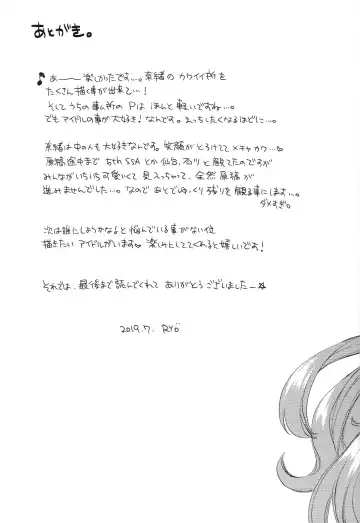 あとがき。
♪ あーー楽しかったです…。奈緒の カワイイ所を
たくさん描く事が出来て…!
そして うちの事ム所の Pは ほんと 軽いですね…。
でも アイドルの事が 大好き! なんです。 えっちしたくなるほどに…。
奈緒は 中の人も 大好きなんです。 笑顔が とろけてて メチャカワ…♡
原稿途中まで 5th SSA とか 仙台、石川と 観てたのですが
みんながいちいち可愛いくて 見入っちゃって、全然 原稿が
進みませんでした…。 なので あとで ゆっくり 残りを 観る事にします…。
ダメすぎ。
次は 誰にしようかな?と 悩んでいる事がない位
描きたい アイドルがいます♡ 楽しみにしててくれると 嬉しいです!
それでは、最後まで 読んでくれて ありがとうございましたー☆
2019.7. RYÖ